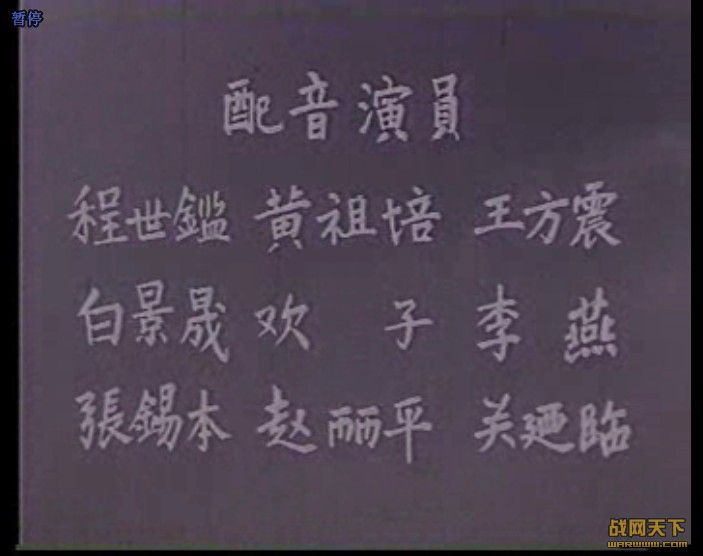 暂停
配音演員
程世鑑 黄祖培 王方震
白景晟 欢 子 李 燕
張錫本 赵丽平 关廼臨
战网天下
WARWWW.COM